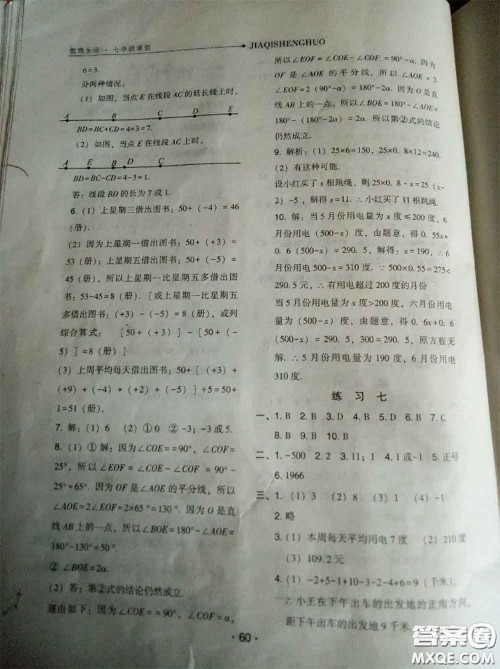 假期生活·七年级寒假
JIAQISHENGHUO
6=3.
分两种情况:
(1) 如图, 当点 E 在线段 AC 的延长线上时,
A B C D E
BD=BC+CD=4+3=7.
(2) 如图, 当点 E 在线段 AC 上时,
A E B D C
BD=BC-CD=4-3=1.
答: 线段 BD 的长为 7 或 1.
6. (1) 上星期三借出图书: 50+(-4)=46
(册).
(2) 因为上星期一借出图书: 50+(+3)=
53 (册); 上星期五借出图书: 50+(-5)=
45 (册), 所以上星期一比星期五多借出图
书: 53-45=8 (册). [或上星期一比星期五
多借出图书: (+3)-(-5)=8 (册), 或列
综合算式: [50+(+3)]-[50+(-
5)]=8 (册)]
(3) 上周平均每天借出图书: 50+[(+3)+
(+9)+(-4)+(+2)+(-5)]÷5=50+
1=51 (册).
7. 解: (1) 6 (2) ①0 ②-3; -3或5.
8. (1) ①解: 因为∠COE==90°, ∠COF=
25°, 所以∠EOF=∠COE-∠COF=90°-
25°=65°. 因为 OF 是∠AOE 的平分线, 所以
∠AOE=2∠EOF=2×65°=130°. 因为 O 是直
线 AB 上的一点, 所以∠BOE=180°-∠AOE=
180°-130°=50°.
②∠BOE=2α.
(2) 答: 第②式的结论仍然成立.
理由如下: 因为∠COE==90°, ∠COF=α,
所以∠EOF=∠COE-∠COF=90°-α. 因
为 OF 是∠AOE 的平分线, 所以∠AOE=
2∠EOF=2(90°-α)=180°-2α. 因为 O 是直
线 AB 上的一点, 所以∠BOE=180°-∠AOE=
180°-(180°-2α)=2α. 所以第②式的结论
仍然成立.
9. 解析: (1) 25×6=150, 25×0.8×12=240.
(2) 有这种可能.
设小红买了 x 根跳绳, 则 25×0.8·x=25(x-
2)-5, 解得 x=11. ∴小红买了 11 根跳绳.
10. 解: 当 5 月份用电量为 x 度≤200 度, 6
月份用电 (500-x) 度, 由题意, 得 0.55x+
0.6(500-x)=290.5, 解得: x=190, ∴6
月份用电 500-x=310 度. ∵500×0.55=275<
290.5 元, ∴有用电超过 200 度的月份
当 5 月份用电量为 x 度>200 度, 六月份用
电量为 (500-x) 度, 由题意, 得 0.6x+0.6
(500-x)=290.5, 300=290.5, 原方程无
解. ∴5 月份用电量为 190 度, 6 月份用电
310 度.
练习七
一、1. B 2. B 3. B 4. D 5. D 6. B 7. C
8. B 9. B 10. B
二、1. -500 2. 2 3. 11; 1 4. 1或-1 5. 正号
6. 1966
三、1. (1) 3 (2) 8 (3) (4) -1
2. 略
3. (1) 本周每天平均用电 7 度 (2) 210 度
(3) 109.2 元
4. (1) -2+5-1+10-3-2-4+6=9 (千米).
∴小王在下午出车的出发地的正南方向,
距下午出车的出发地 9 千米.
·60·
答案圈
MXQE.COM